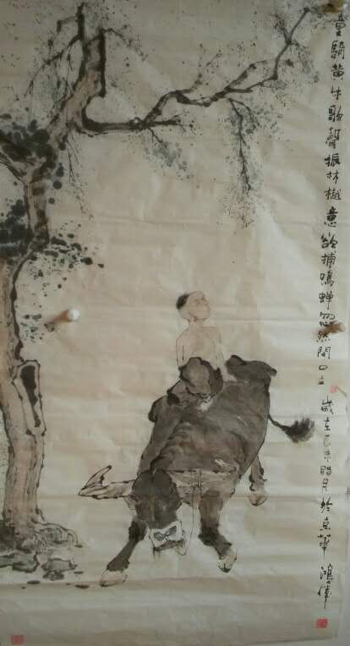 童騎黄牛歌聲振林樾意欲捕鳴蟬忽然閉口立 歲在月於京華 鴻偉